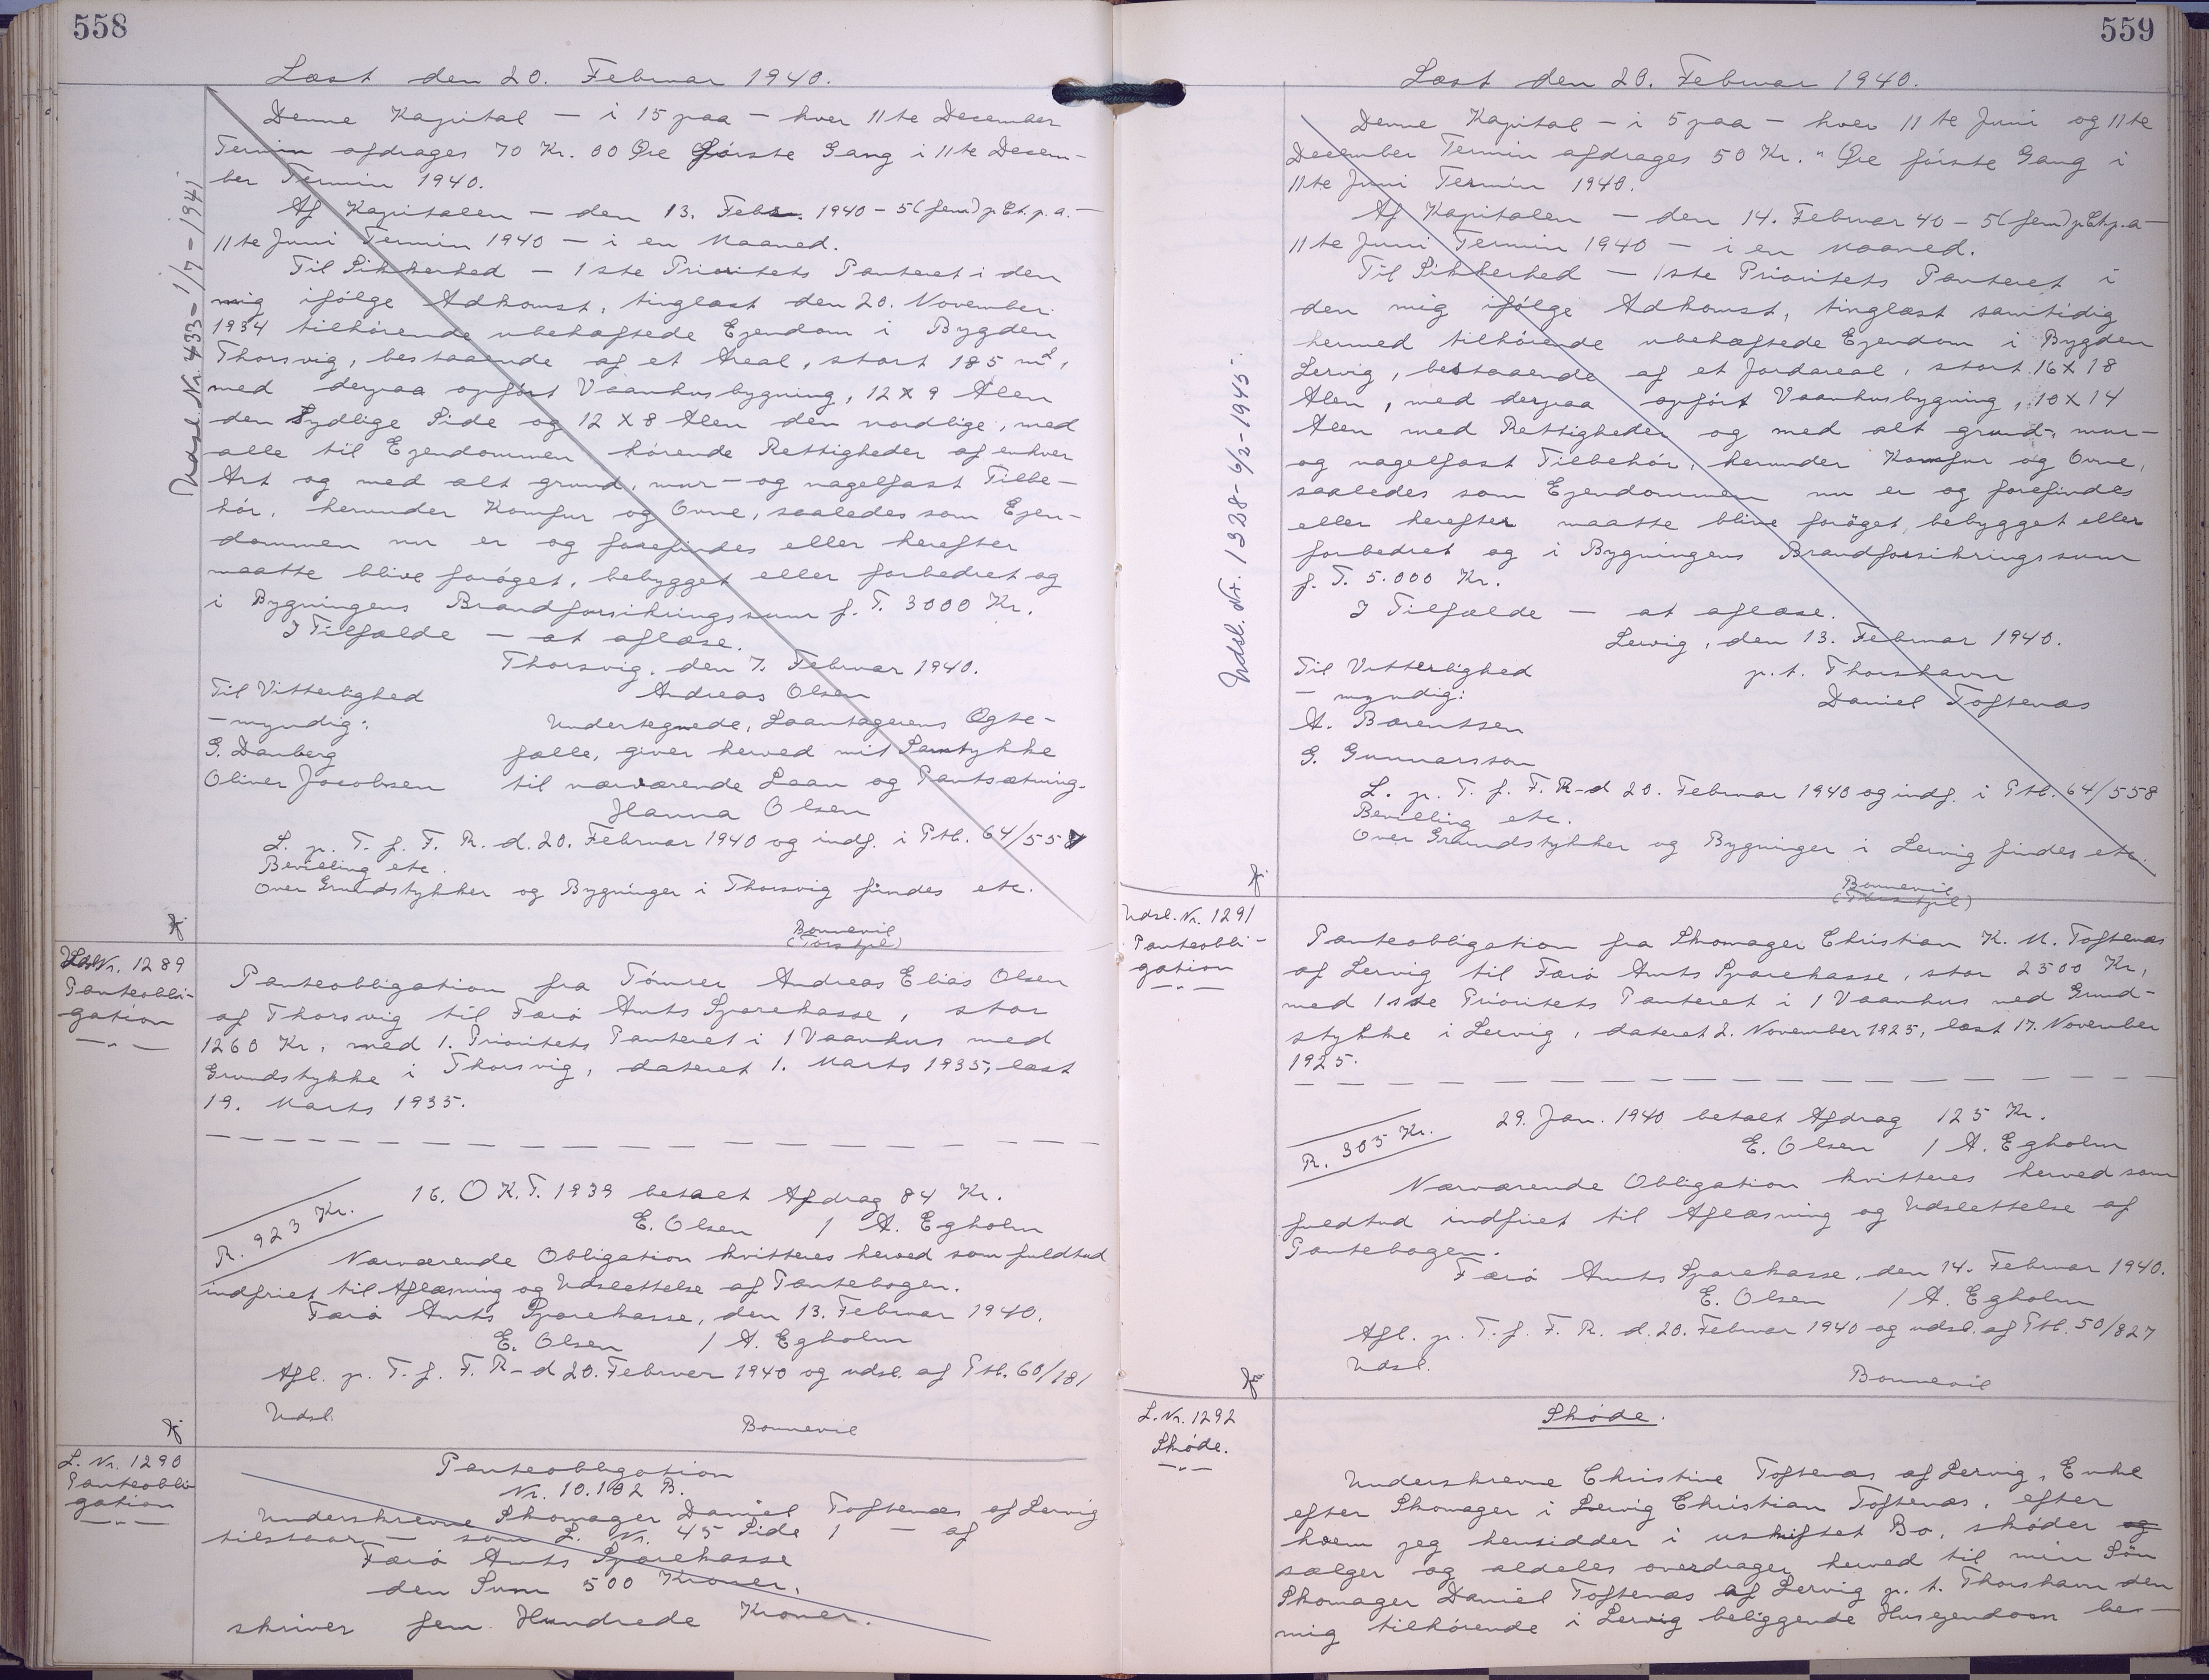 558
Læst den 20. Februar 1940.
Denne Kapital — i 15 paa — hver 11te December
Termin afdrages 70 Kr. 00 Øre første Gang i 11te Decem-
ber Termin 1940.
Af Kapitalen — den 13. Febr. 1940 – 5 (fem) p.Ct. p.a. —
11te Juni Termin 1940 — i en Maaned.
Til Sikkerhed — 1ste Prioritets Panteret i den
mig ifølge Adkomst, tinglæst den 20. November
1934 tilhørende ubehæftede Ejendom i Bygden
Thorsvig, bestaaende af et Areal, stort 185 m²,
med derpaa opført Vaanhusbygning, 12 x 9 Alen
den Sydlige Side og 12 x 8 Alen den nordlige, med
alle til Ejendommen hørende Rettigheder af enhver
Art og med alt grund, mur- og nagelfast Tilbe-
hør, herunder Komfur og Ovne, saaledes som Ejen-
dommen nu er og forefindes eller herefter
maatte blive forøget, bebygget eller forbedret og
i Bygningens Brandforsikringssum f. T. 3000 Kr.
I Tilfælde — at aflæse.
Thorsvig, den 7. Februar 1940.
Til Vitterlighed Andreas Olsen
— myndig: Undertegnede, Laantagerens Ægte-
G. Danberg fælle, giver herved mit Samtykke
Oliver Jacobsen til nærværende Laan og Pantsætning.
Hanna Olsen
L. p. T. f. F. R. d. 20. Februar 1940 og indf. i Ptb. 64/557
Bevilling etc.
Over Grundstykker og Bygninger i Thorsvig findes etc.
Bonnevil
Udsl. Nr. 433 – 1/7 – 1941
Udsl. Nr. 1289
Panteobli-
gation
— „ —
Panteobligation fra Tømrer Andreas Elias Olsen
af Thorsvig til Færø Amts Sparekasse, stor
1260 Kr, med 1. Prioritets Panteret i 1 Vaanhus med
Grundstykke i Thorsvig, dateret 1. Marts 1935, læst
19. Marts 1935.
R. 923 Kr.
16. OKT. 1939 betalt Afdrag 84 Kr.
E. Olsen / A. Egholm
Nærværende Obligation kvitteres herved som fuldtud
indfriet til Aflæsning og Udslettelse af Pantebogen.
Færø Amts Sparekasse, den 13. Februar 1940.
E. Olsen / A. Egholm
Afl. p. T. f. F. R-d 20. Februar 1940 og udsl. af Ptb. 60/181
Udsl.
Bonnevil
L. Nr. 1290
Panteobli-
gation
— „ —
Panteobligation
Nr. 10.182 B.
Underskrevne Skomager Daniel Toftenæs af Lervig
tilstaar — som L. Nr. 45 Side 1 — af
Færø Amts Sparekasse
den Sum 500 Kroner,
skriver fem Hundrede Kroner.
559
Læst den 20. Februar 1940.
Denne Kapital — i 5 paa — hver 11te Juni og 11te
December Termin afdrages 50 Kr. " Øre første Gang i
11te Juni Termin 1940.
Af Kapitalen — den 14. Februar 40 – 5 (fem) p.Ct. p.a —
11te Juni Termin 1940 — i en Maaned.
Til Sikkerhed — 1ste Prioritets Panteret i
den mig ifølge Adkomst, tinglæst samtidig
hermed tilhørende ubehæftede Ejendom i Bygden
Lervig, bestaaende af et Jordareal, stort 16 x 18
Alen, med derpaa opført Vaanhusbygning, 10 x 14
Alen med Rettigheder og med alt grund-, mur-
og nagelfast Tilbehør, herunder Komfur og Ovne,
saaledes som Ejendommen nu er og forefindes
eller herefter maatte blive forøget, bebygget eller
forbedret og i Bygningens Brandforsikringssum
f. T. 5.000 Kr.
I Tilfælde — at aflæse.
Lervig, den 13. Februar 1940.
Til Vitterlighed p. t. Thorshavn
— myndig: Daniel Toftenæs
A. Barentsen
G. Gunnarsson
L. p. T. f. F. R-d 20. Februar 1940 og indf. i Ptb. 64/558
Bevilling etc.
Over Grundstykker og Bygninger i Lervig findes etc.
Bonnevil
Udsl. Nr. 1328 – 6/2 – 1945.
Udsl. Nr. 1291
Panteobli-
gation
— „ —
Panteobligation fra Skomager Christian K. M. Toftenæs
af Lervig til Færø Amts Sparekasse, stor 2500 Kr,
med 1ste Prioritets Panteret i 1 Vaanhus med Grund-
stykke i Lervig, dateret 2. November 1925, læst 17. November
1925.
R. 305 Kr.
29. Jan. 1940 betalt Afdrag 125 Kr.
E. Olsen / A. Egholm
Nærværende Obligation kvitteres herved som
fuldtud indfriet til Aflæsning og Udslettelse af
Pantebogen.
Færø Amts Sparekasse, den 14. Februar 1940.
E. Olsen / A. Egholm
Afl. p. T. f. F. R. d. 20. Februar 1940 og udsl. af Ptb. 50/827
Udsl.
Bonnevil
L. Nr. 1292
Skøde.
— „ —
Skøde.
Underskrevne Christine Toftenæs af Lervig, Enke
efter Skomager i Lervig Christian Toftenæs, efter
hvem jeg hensidder i uskiftet Bo, skøder og
sælger og aldeles overdrager herved til min Søn
Skomager Daniel Toftenæs af Lervig p. t. Thorshavn den
mig tilhørende i Lervig beliggende Husejendom bes-